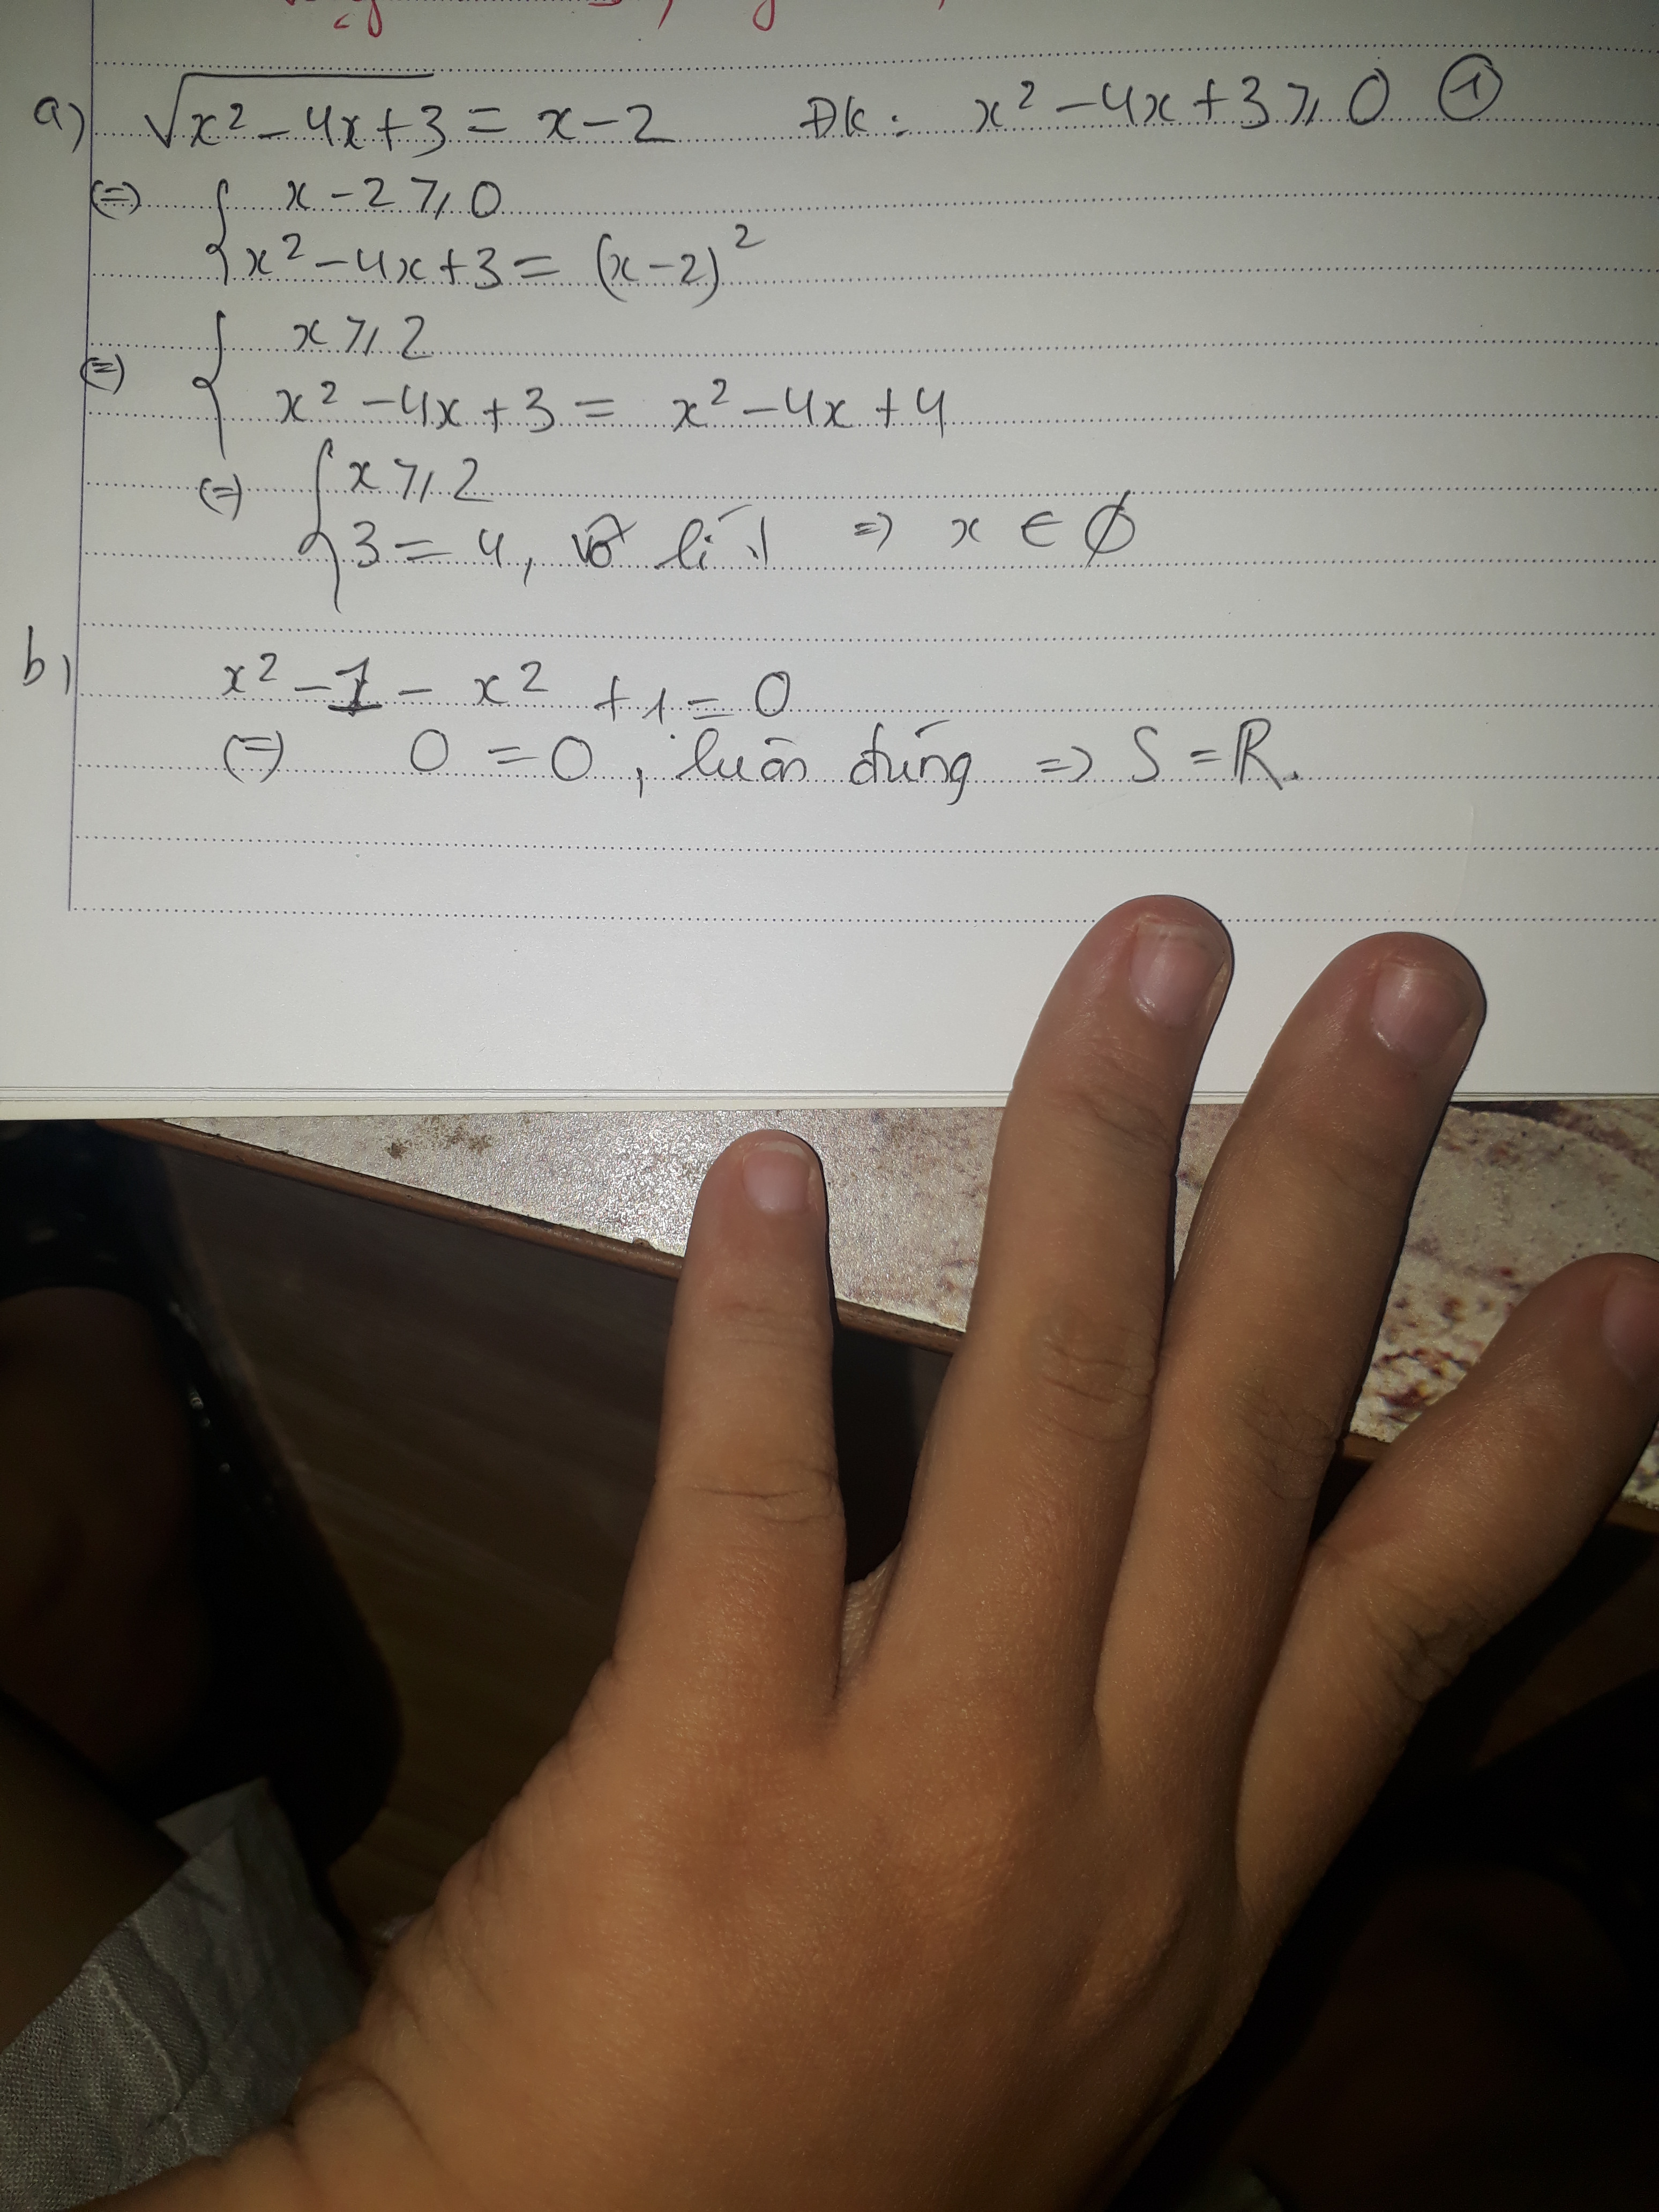 a) √(x² - 4x + 3) = x - 2 ĐK: x² - 4x + 3 ≥ 0 ①
(=) { x - 2 ≥ 0
x² - 4x + 3 = (x - 2)²
(=) { x ≥ 2
x² - 4x + 3 = x² - 4x + 4
(=) { x ≥ 2
3 = 4, vô lí ! => x ∈ ∅
b) x² - 1 - x² + 1 = 0
(=) 0 = 0, luôn đúng => S = ℝ.